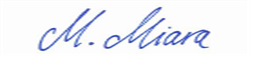 M. Miara